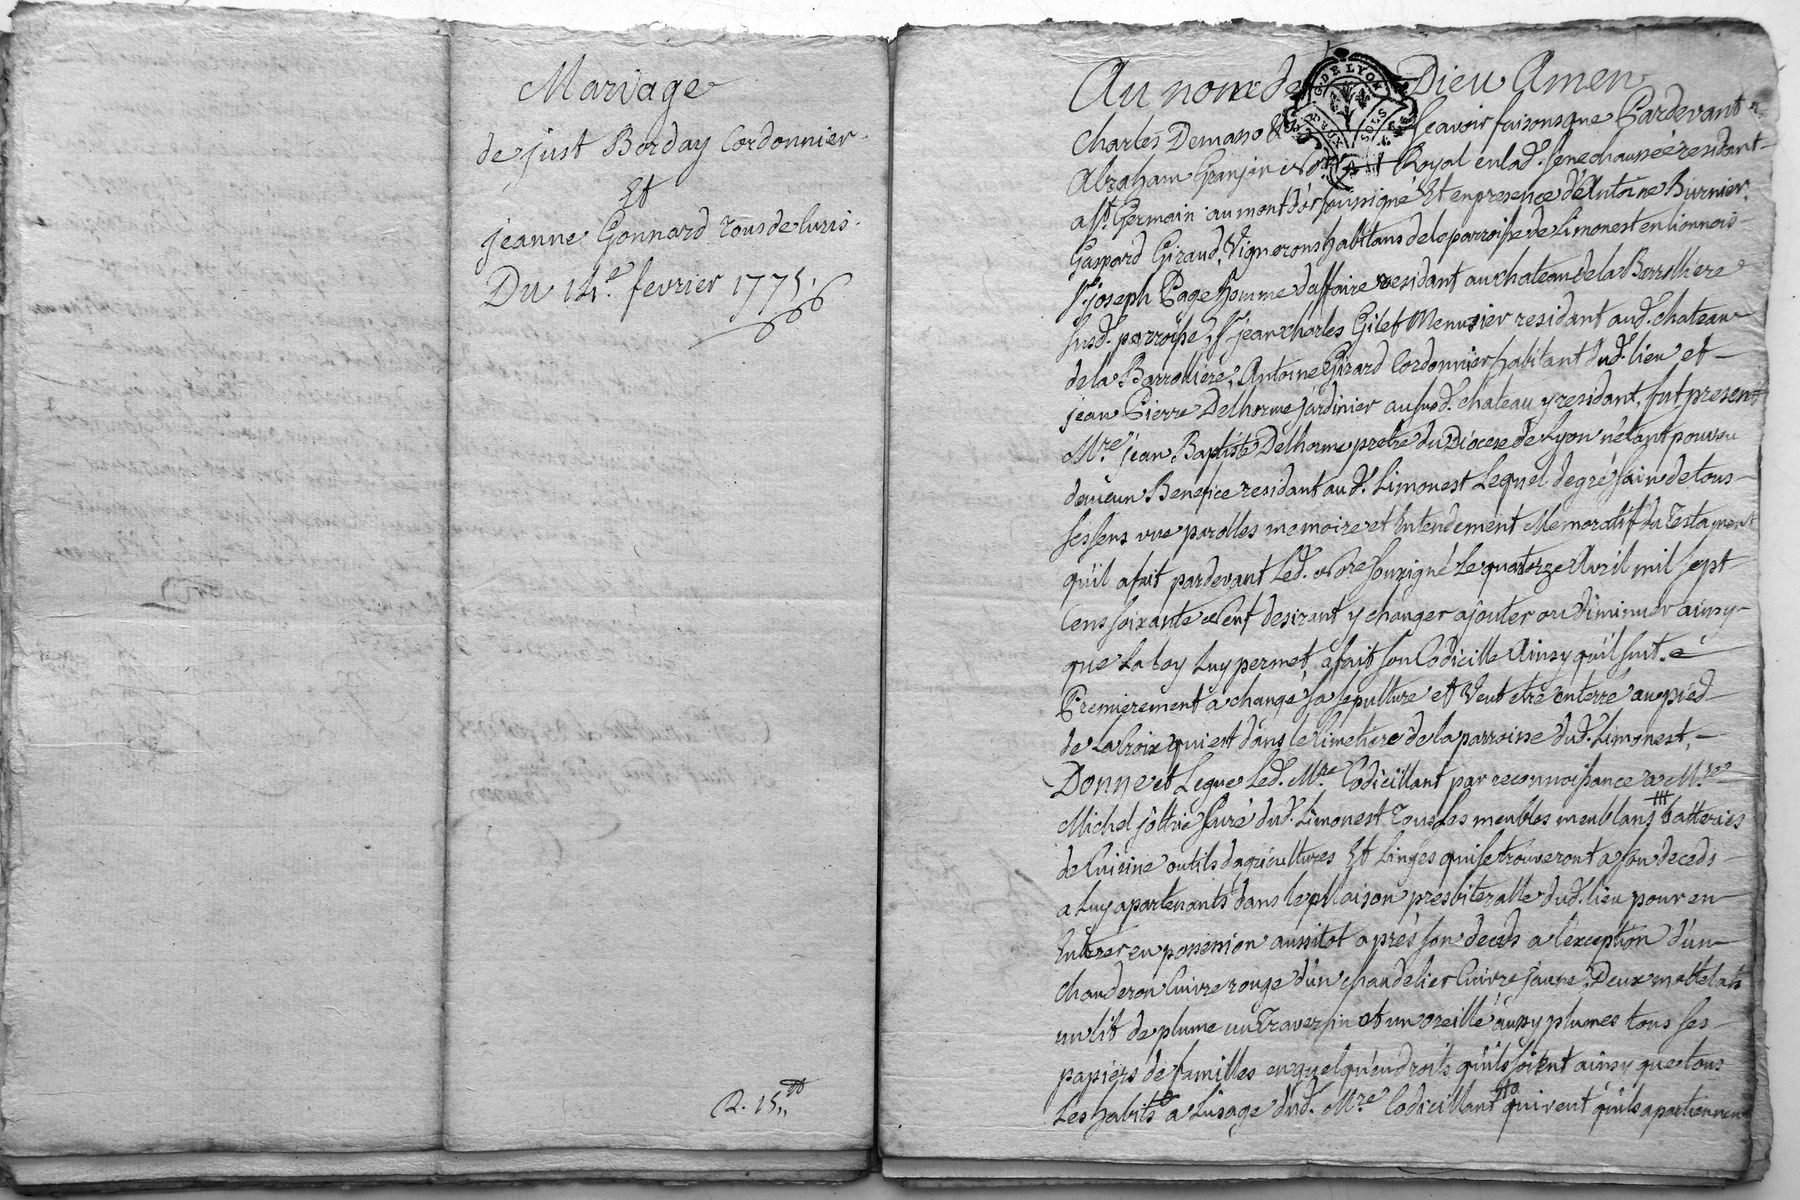 Mariage
de just Borday Cordonnier
Et
jeanne Gonnard tous de Curis.
Du 14e. fevrier 1775.
R. 15
Au nom de Dieu Amen
DE LYON
DEUX SOLS
Charles Demaso & Scavoir faisons que Pardevant
Abraham Granjan No.re Royal en lad. senechaussée residant
a St. Germain au mont d'or soussigné Et en presence d'Antoine Burnier
Gaspard Giraud, Vignerons habitans de la parroisse de Limonest en lionnois
Sr. joseph Page homme daffaire residant au chateau de la Barrolliere
susd. parroisse, Sr jean charles Gilet Menusier residant aud. chateau
de la Barrolliere, Antoine Girard Cordonnier habitant dud. lieu et
jean Pierre Delhorme jardinier au susd. chateau y residant, fut present
Mre. jean Baptiste Delhorme pretre du Diocese de Lyon n'étant pourvu
daucun Benefice residant aud. Limonest Lequel de gré sain de tous
ses sens vue parolles memoire et Entendement Memoratif du Testament
qu'il a fait pardevant Led. No.re souzigné Le quatorze Avril mil sept
Cens soixante Neuf desirant y changer ajouter ou diminuer ainsy
que La Loy Luy permet, a fait son Codicille Ainsy qu'il suit.
Premierement a changé sa sepulture et Veut etre enterré au pied
de La Croix qui est dans le Cimetiere de la parroisse dud. Limonest,
Donne et Legue Led. Mre. Codicillant par reconnoissance a Mre.
Michel Curé dud. Limonest Tous Les meubles meublans batteries
de Cuisine outils dagricultures Et Linges qui se trouveront a son deceds
a Luy apartenants dans le Maison presbiteralle dud. lieu pour en
Entrer en possession aussitot après son deceds a l'exception d'un
chauderon Cuivre rouge d'un chandelier Cuivre jaune, Deux mattelats
un lit de plume un Traversin et un oreillé aussy plumes tous ses
papiers de familles en quelqu'endroits qu'ils soient ainsy que tous
Les habits a Lusage dud. Mre Codicillant qui veut qu'ils apartiennent